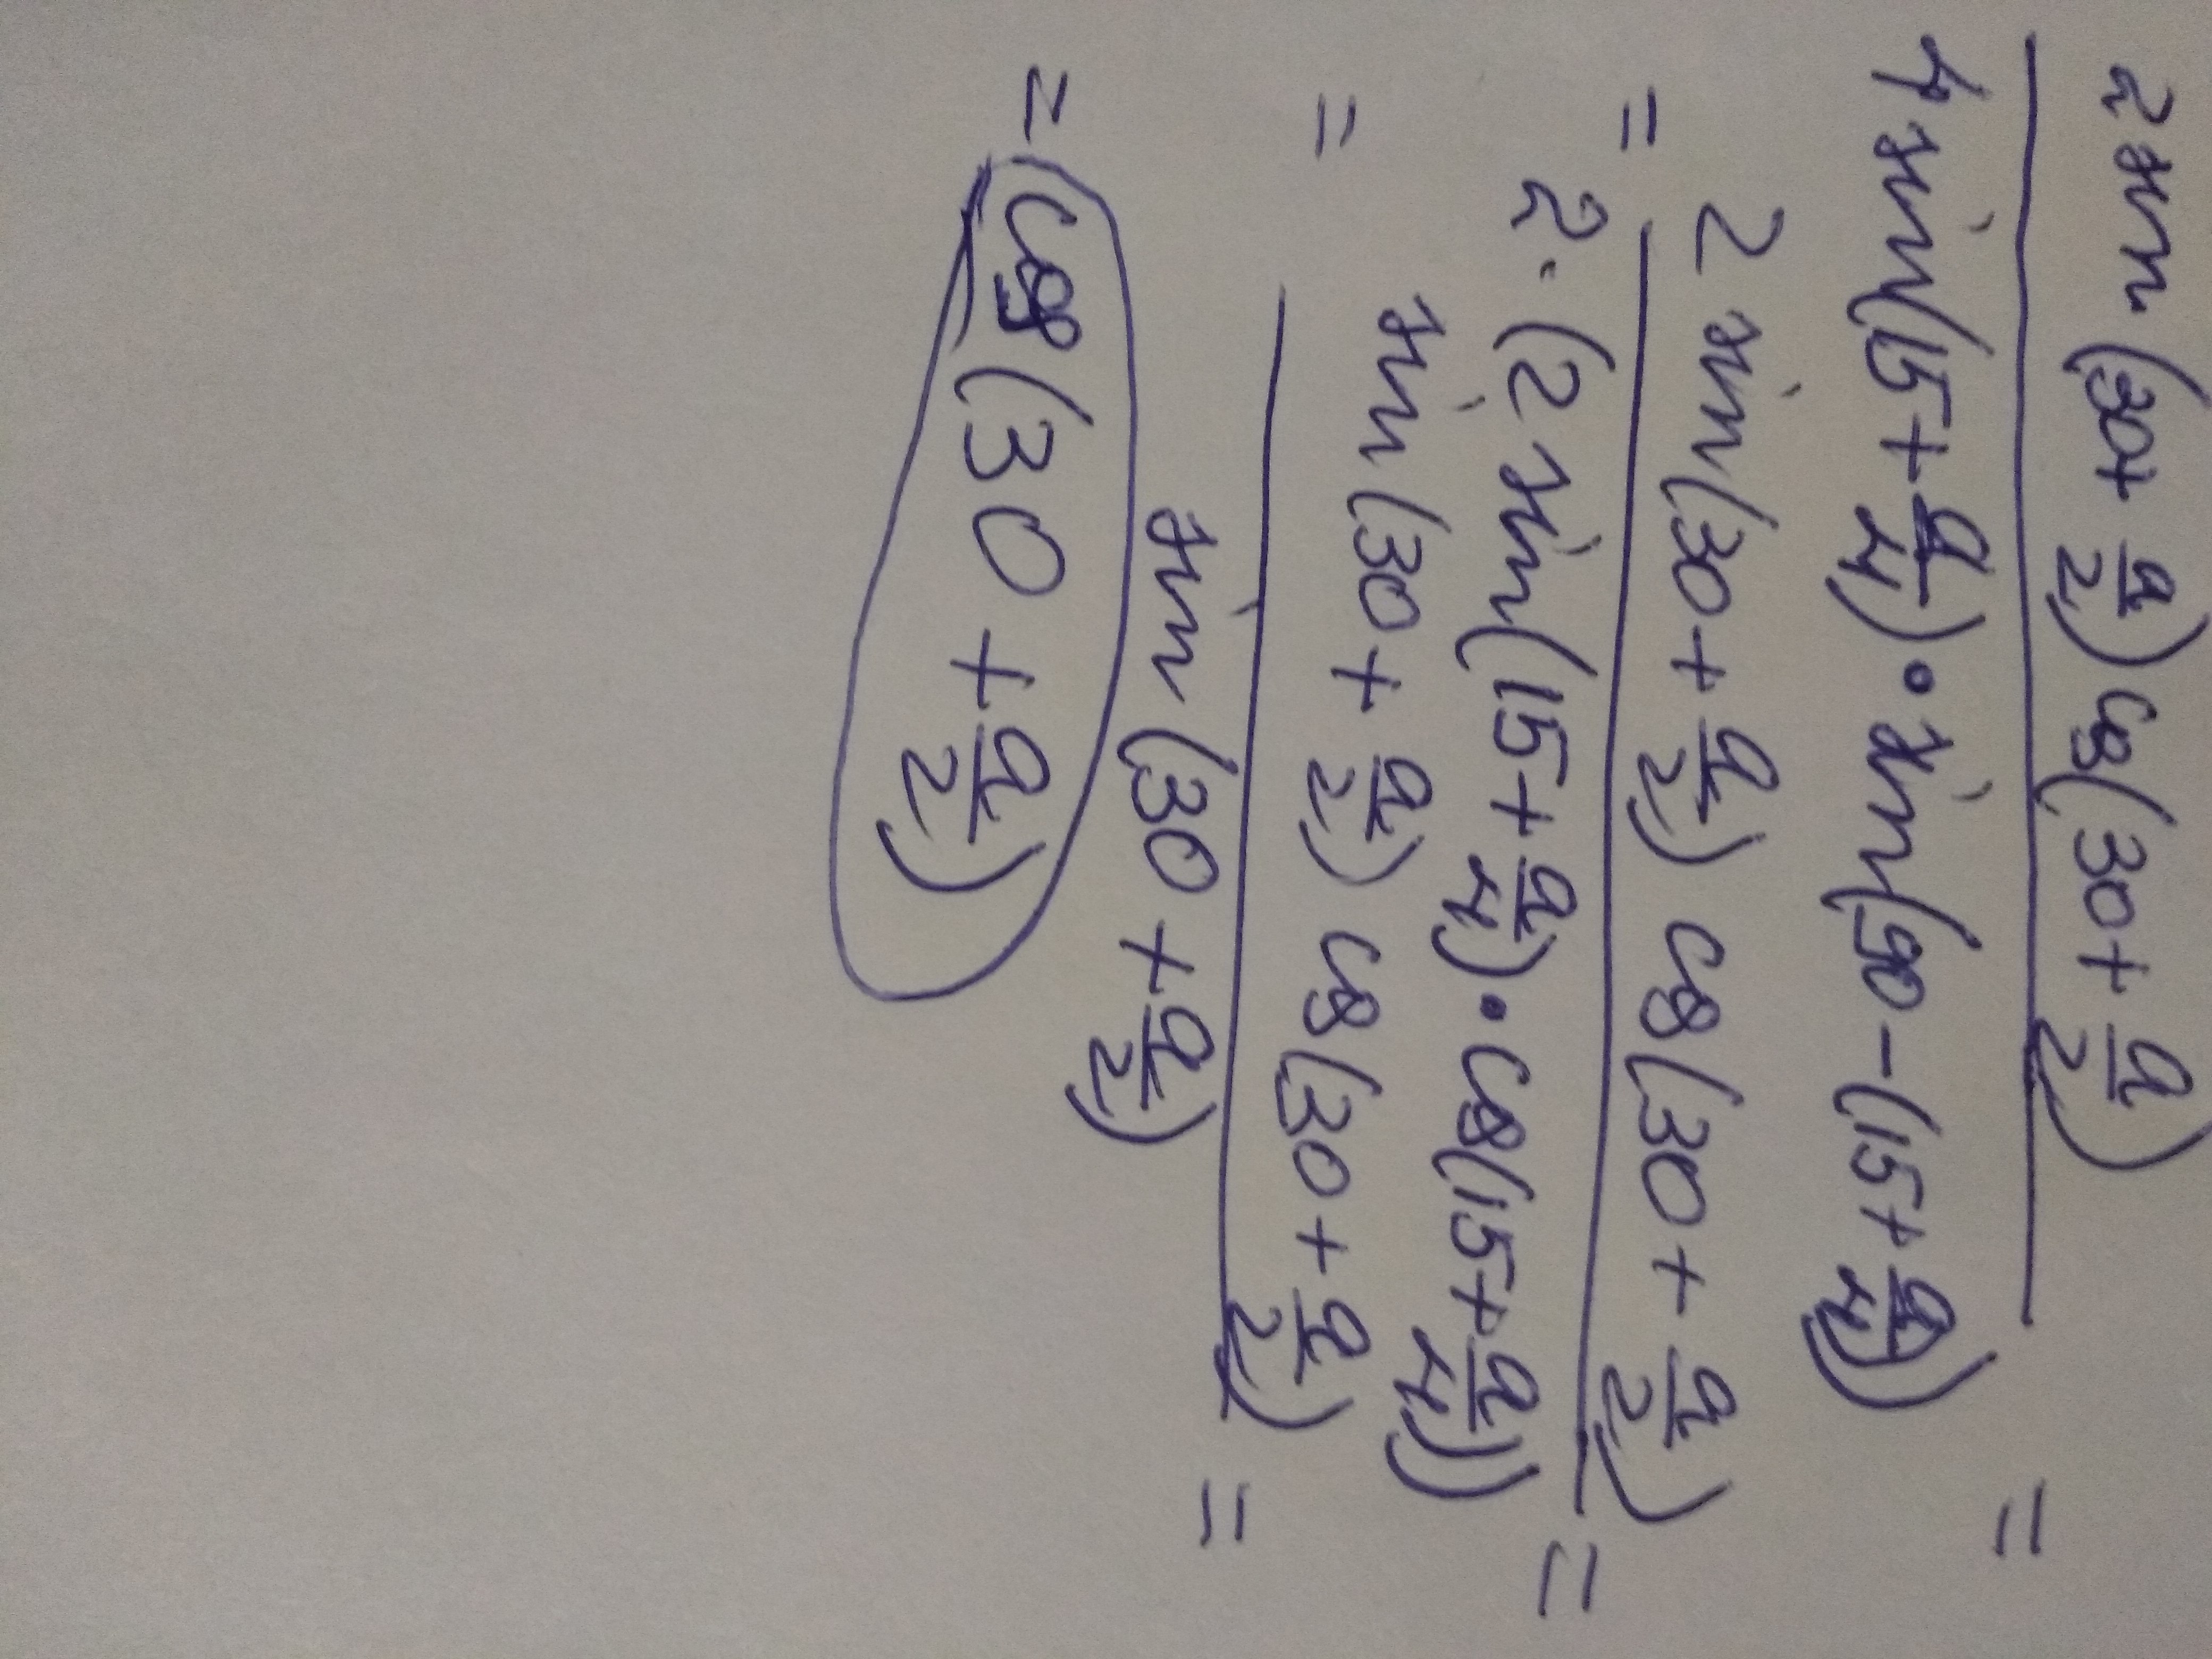 2 sin (30 + α/2) cos (30 + α/2)
=
4 sin (15 + α/4) • sin (90 - (15 + α/4))
= 2 sin (30 + α/2) cos (30 + α/2)
=
2 · (2 sin (15 + α/4) • cos (15 + α/4))
= sin (30 + α/2) cos (30 + α/2)
=
sin (30 + α/2)
= cos (30 + α/2)